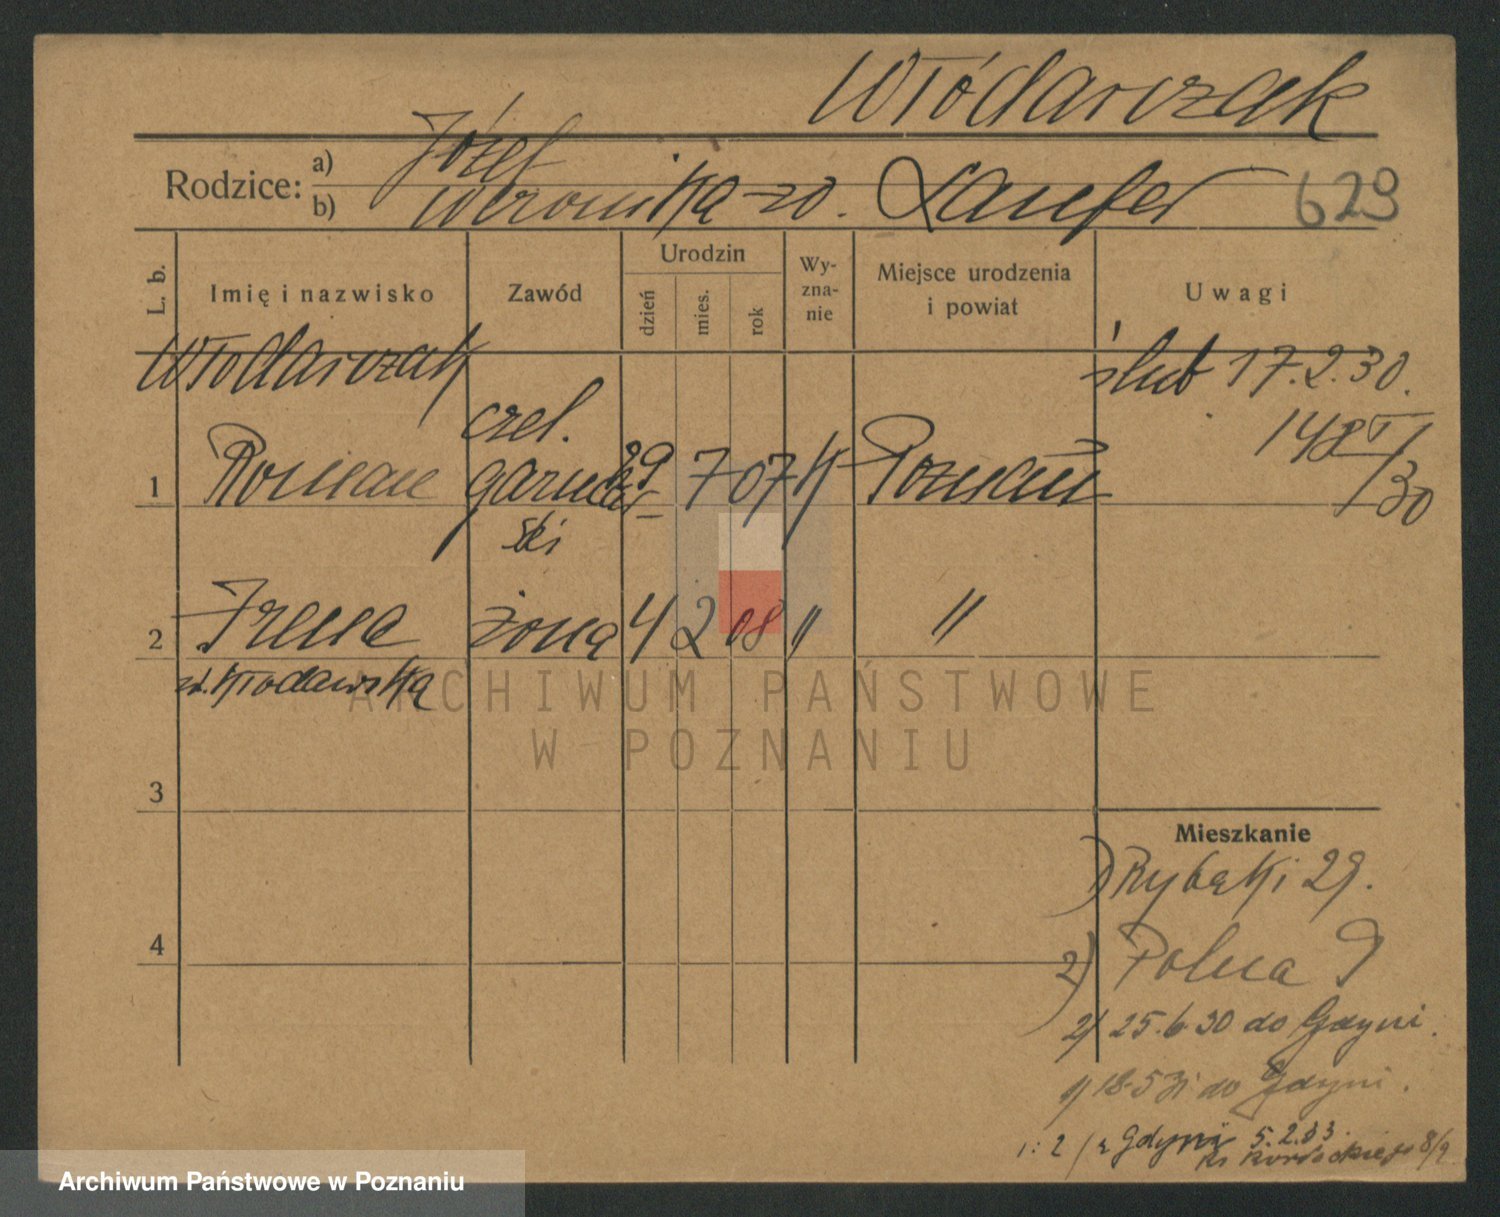 Włódarczak
Rodzice:
a) Józef
b) Weronika zd. Laufer
629
L. b.
Imię i nazwisko
Zawód
Urodzin
dzień
mies.
rok
Wy-
zna-
nie
Miejsce urodzenia
i powiat
Uwagi
Włodarczak
ślub 17.2.30.
czel.
148
/30
1 Roman garncar 29 7 07 K Poznań
ski
2 Irena żona 4 2 08 " "
zd. Kłodawska
ARCHIWUM PAŃSTWOWE
W POZNANIU
3
Mieszkanie
1) Rybaki 29.
4
2) Polna 9
2/ 25.6.30 do Gdyni.
1/ 18-5 31 do Gdyni.
1:2 / z Gdyni 5.2.33.
8/9
Archiwum Państwowe w Poznaniu